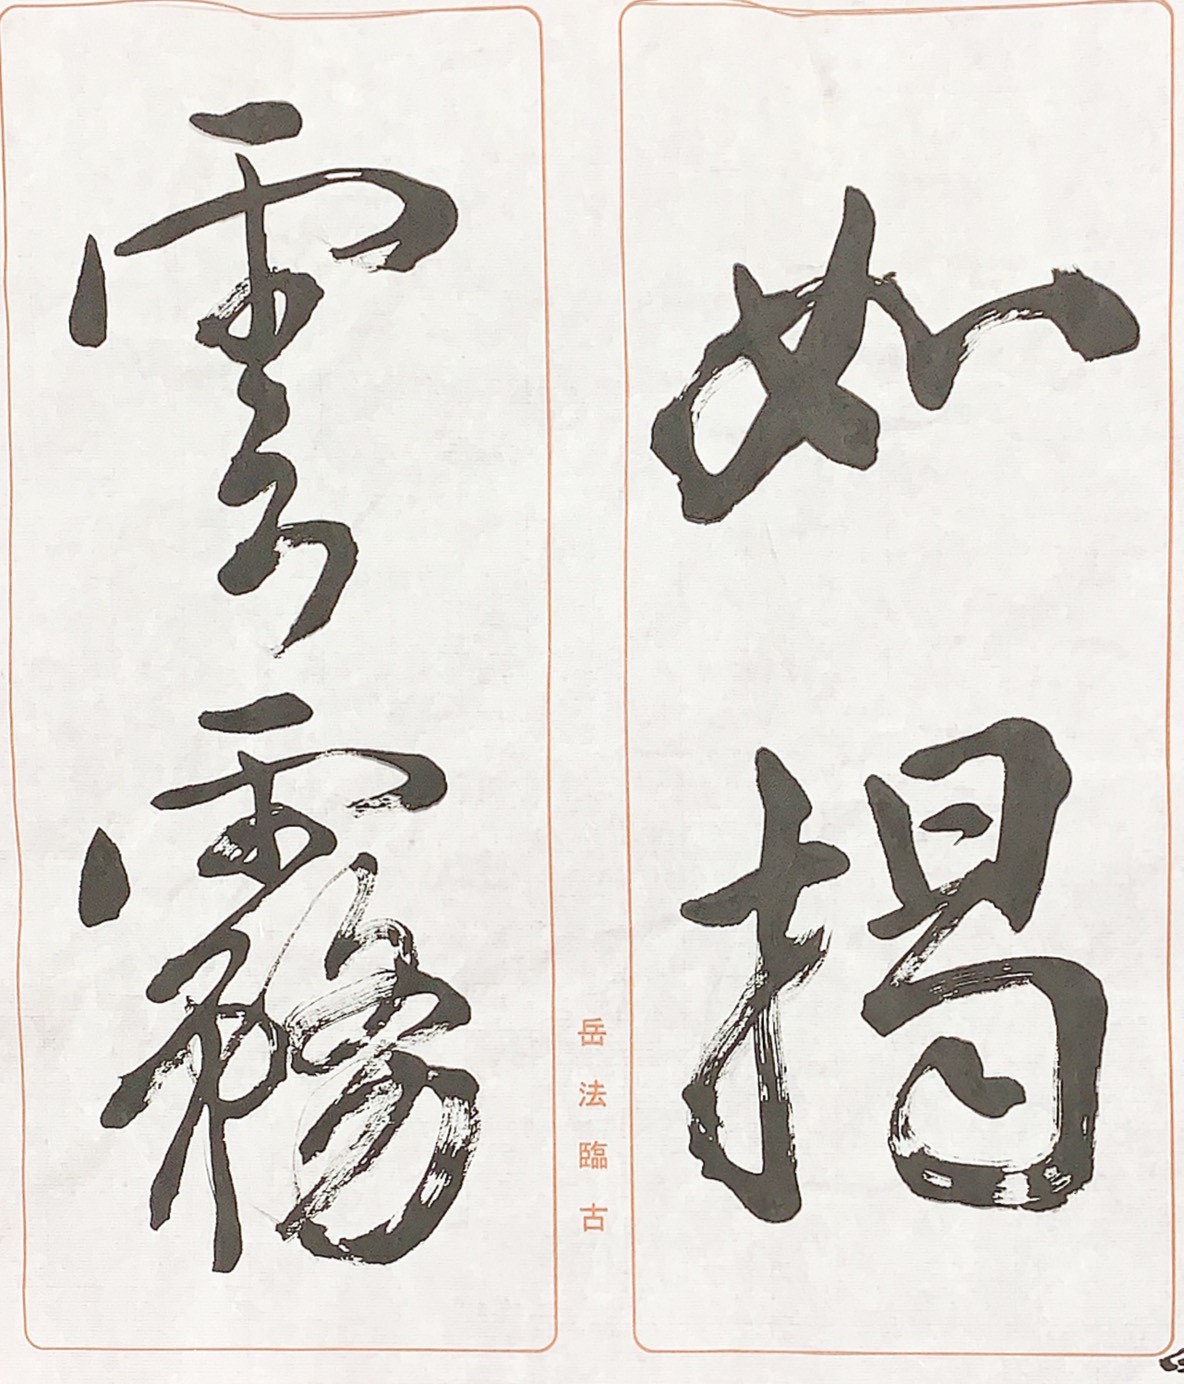 如揭
雲霧
岳法臨古